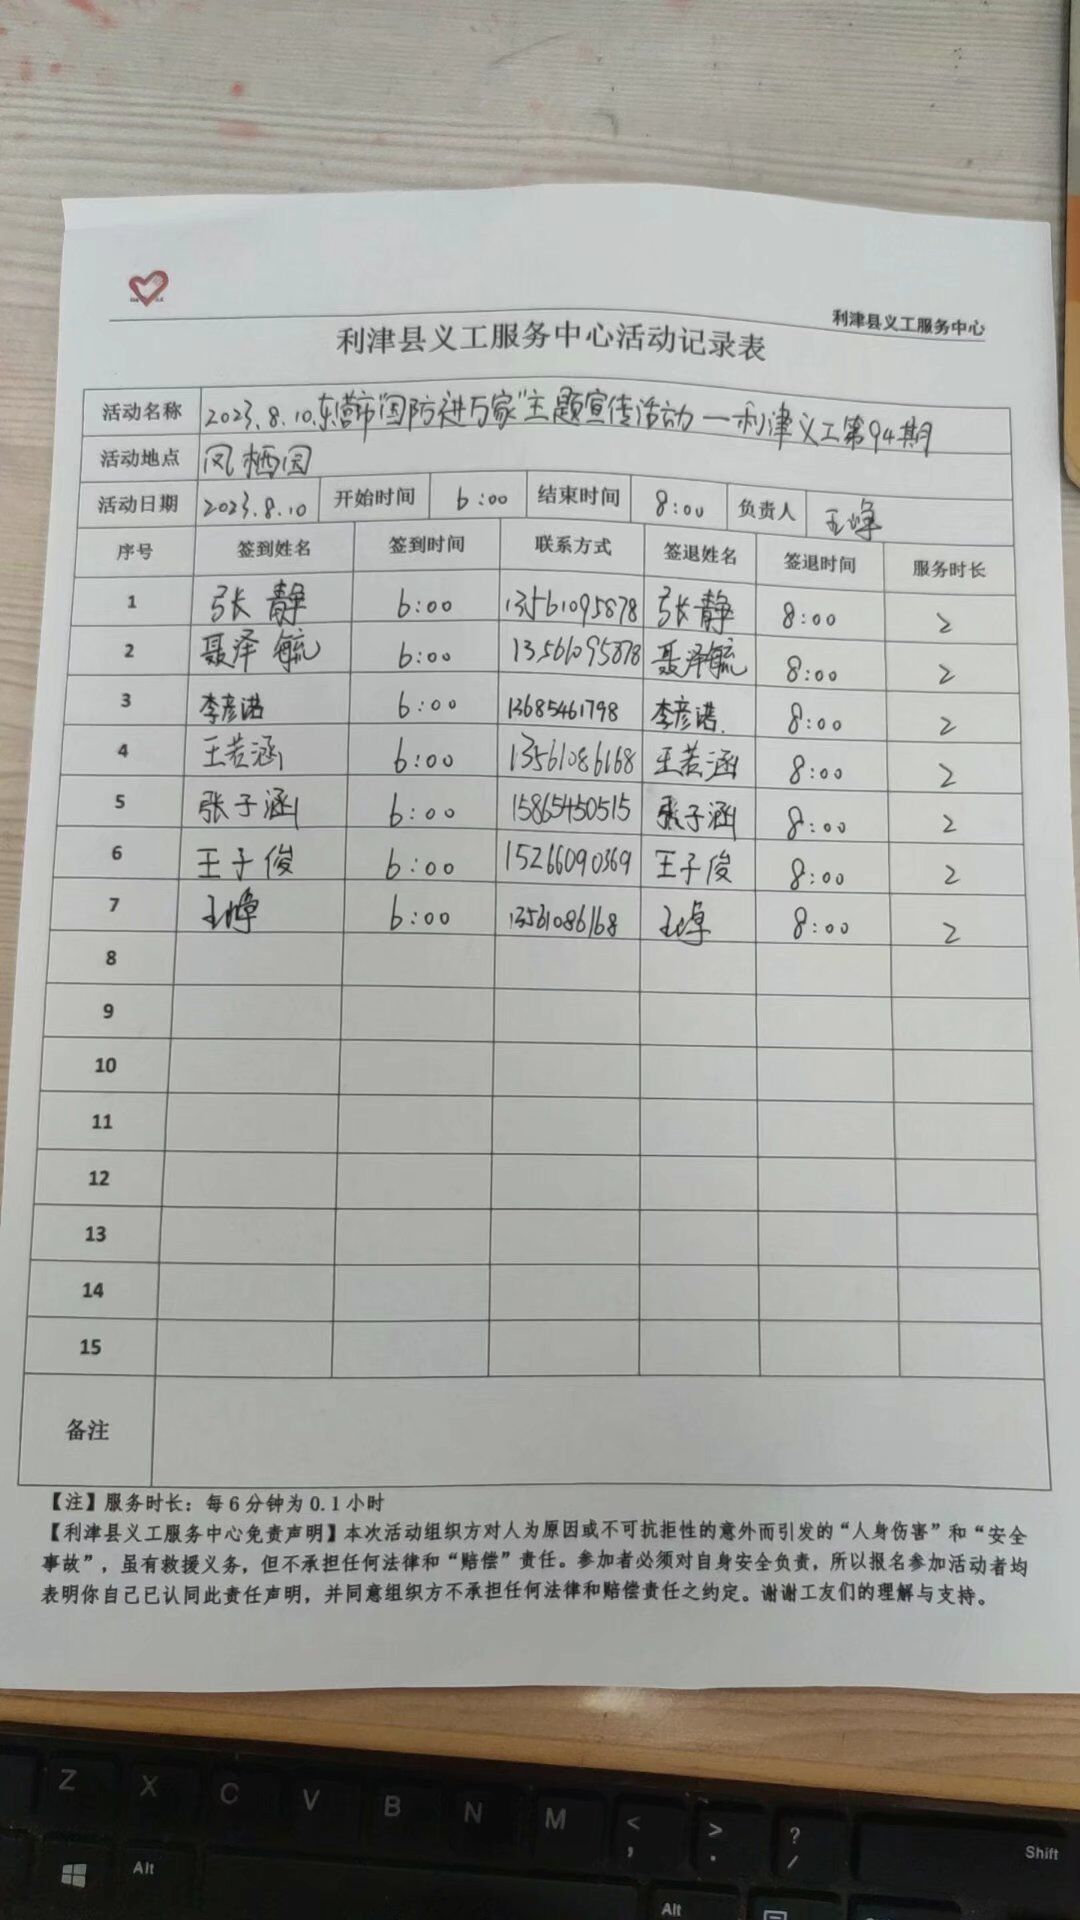 利津县义工服务中心
利津县义工服务中心活动记录表
活动名称 2023.8.10.东营市"国防进万家"主题宣传活动—利津义工第94期
活动地点 凤栖园
活动日期 2023.8.10 开始时间 6:00 结束时间 8:00 负责人 王峰
序号 签到姓名 签到时间 联系方式 签退姓名 签退时间 服务时长
1 张静 6:00 13561095878 张静 8:00 2
2 聂泽毓 6:00 13561095878 聂泽毓 8:00 2
3 李彦诺 6:00 13685461798 李彦诺. 8:00 2
4 王若涵 6:00 13561086168 王若涵 8:00 2
5 张子涵 6:00 15865450515 张子涵 8:00 2
6 王子俊 6:00 15266090369 王子俊 8:00 2
7 6:00 13561086168 8:00 2
8
9
10
11
12
13
14
15
备注
【注】服务时长：每6分钟为0.1小时
【利津县义工服务中心免责声明】本次活动组织方对人为原因或不可抗拒性的意外而引发的“人身伤害”和“安全
事故”，虽有救援义务，但不承担任何法律和“赔偿”责任。参加者必须对自身安全负责，所以报名参加活动者均
表明你自己已认同此责任声明，并同意组织方不承担任何法律和赔偿责任之约定。谢谢工友们的理解与支持。
Z X C V B N M < , > . ? / Shift
Alt Alt